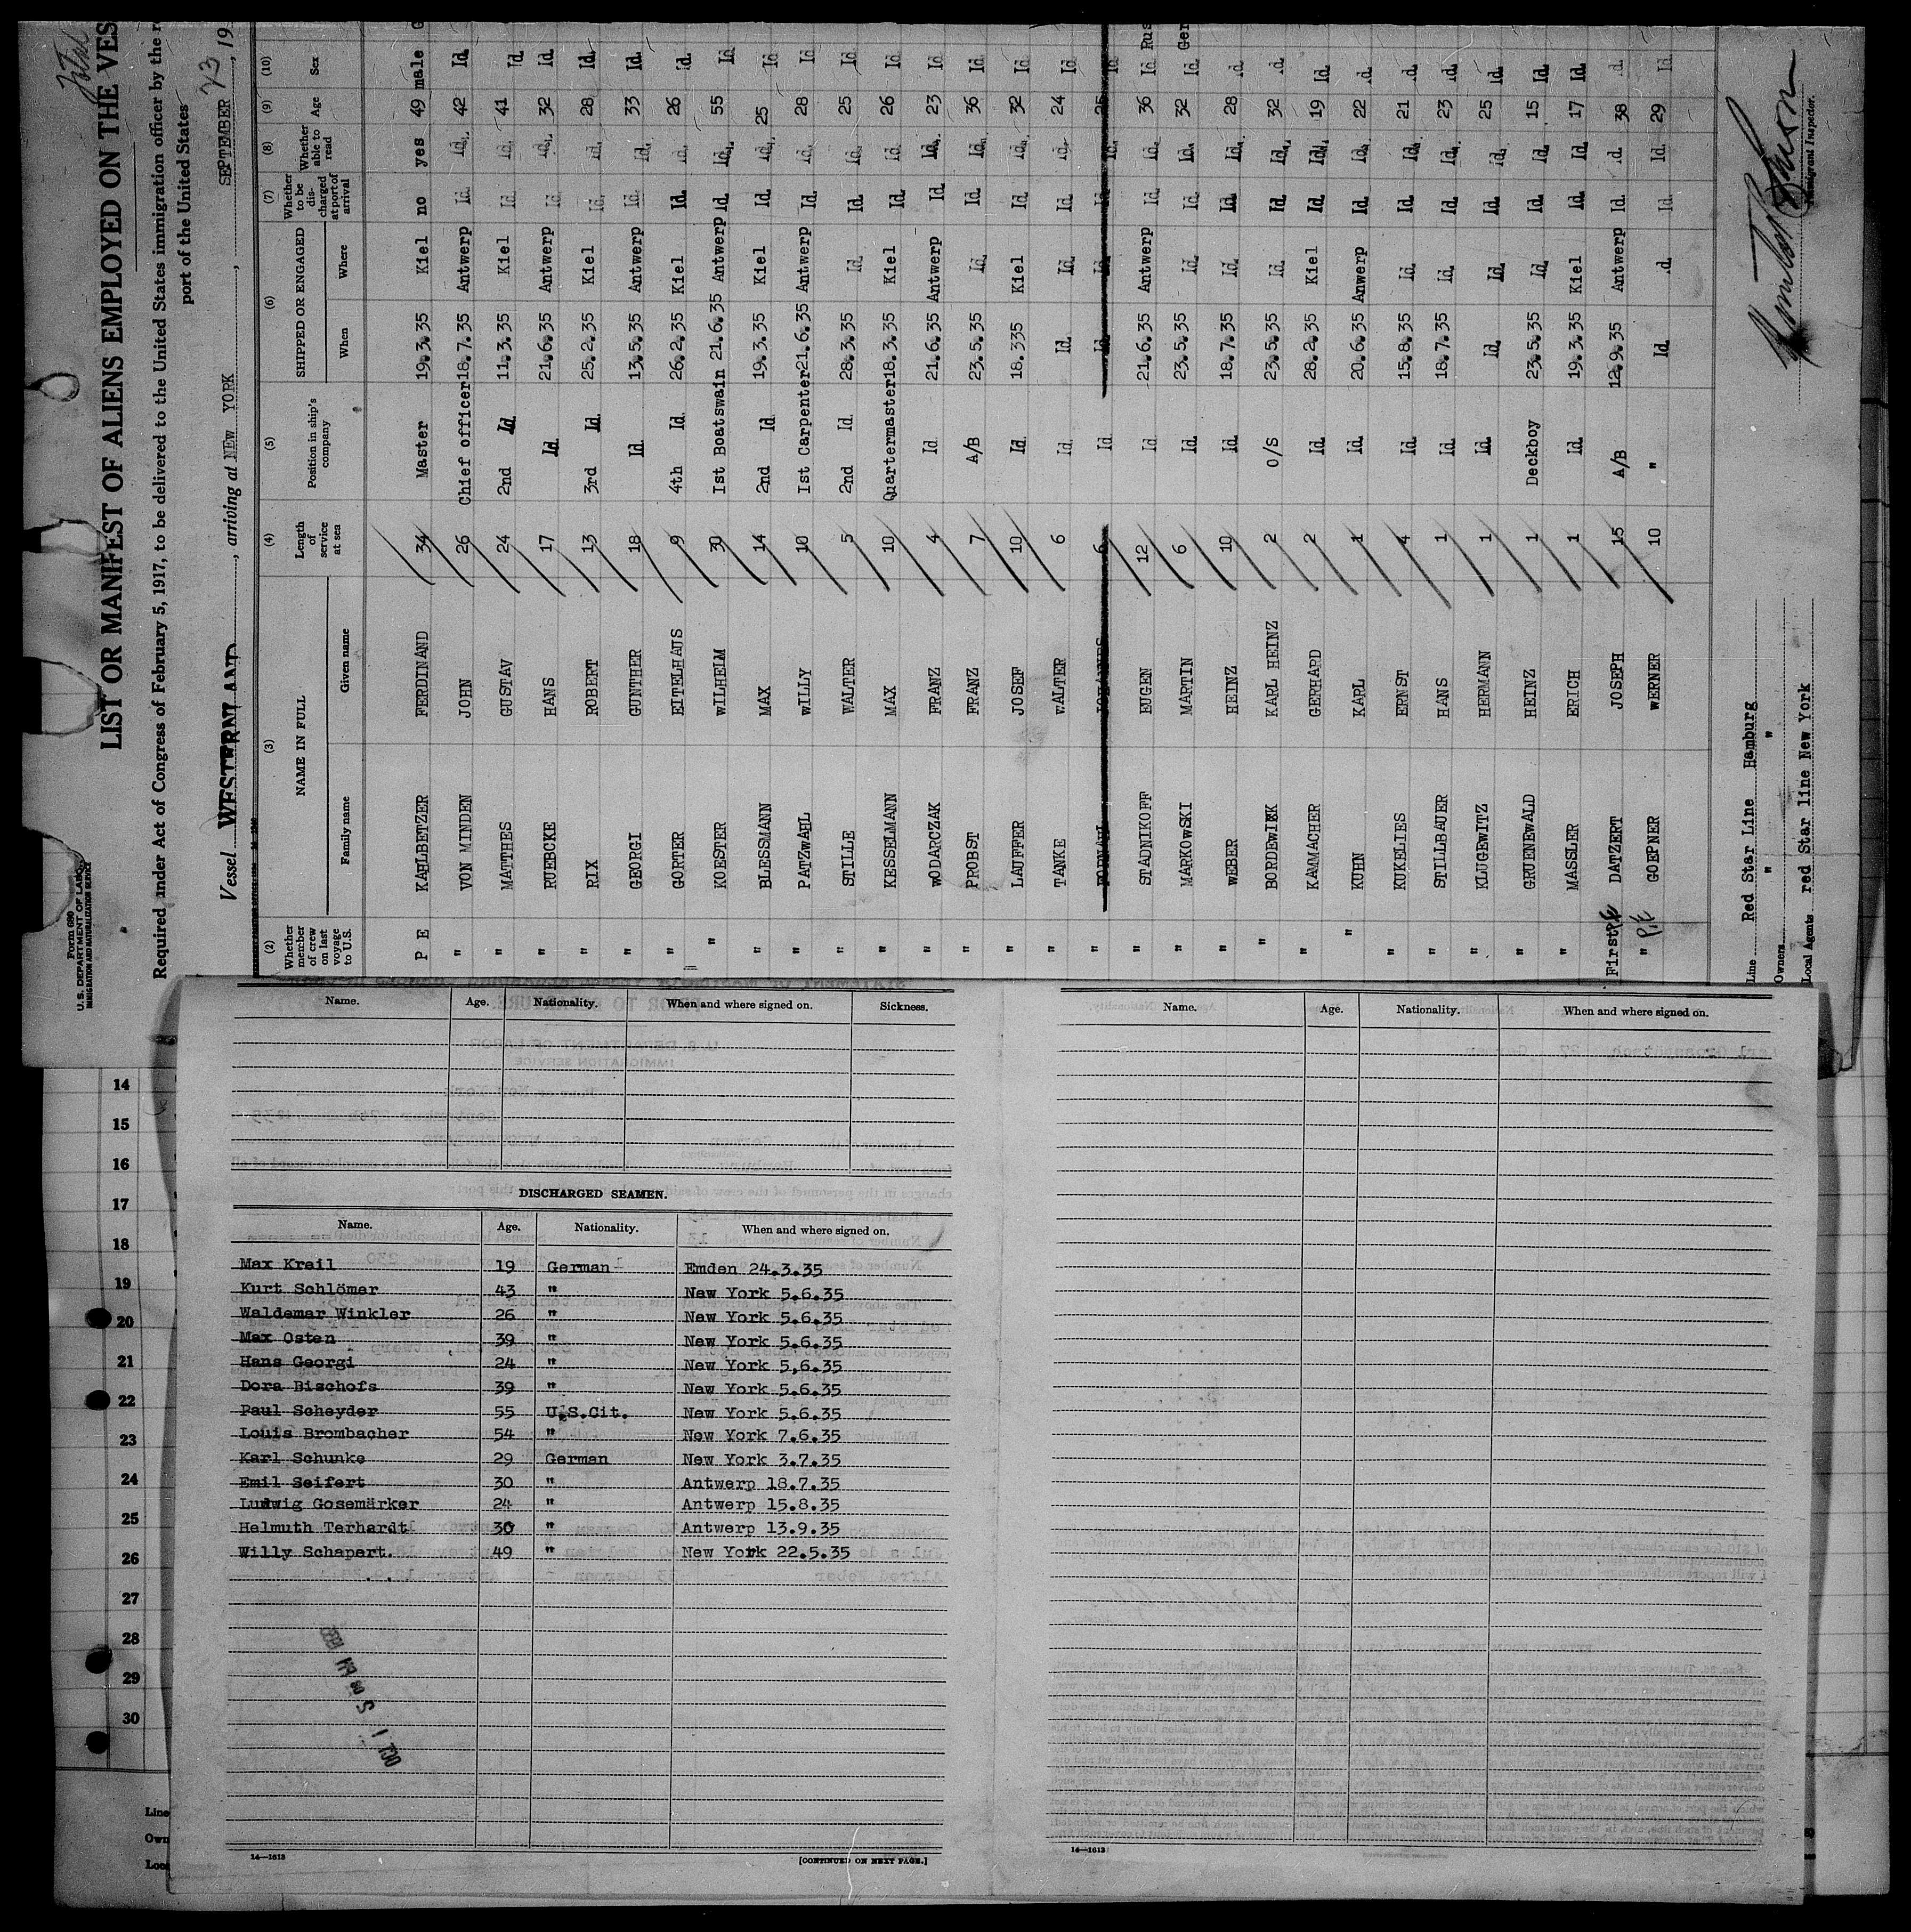 Form 680
U. S. DEPARTMENT OF LABOR
IMMIGRATION AND NATURALIZATION SERVICE
LIST OR MANIFEST OF ALIENS EMPLOYED ON THE VES
Required under Act of Congress of February 5, 1917, to be delivered to the United States immigration officer by the
port of the United States
Vessel WESTERNLAND, arriving at NEW YORK, SEPTEMBER 23, 19
(2) (3) (4) (5) (6) (7) (8) (9) (10)
Whether member of crew on last voyage to U.S. NAME IN FULL Family name Given name Length of service at sea Position in ship's company SHIPPED OR ENGAGED When Where Whether to be discharged at port of arrival Whether able to read Age Sex
P E KAHLBETZER FERDINAND 34 Master 19.3.35 Kiel no yes 49 male G
" VON MINDEN JOHN 26 Chief officer 18.7.35 Antwerp Id. Id. 42 Id.
" MATTHES GUSTAV 24 2nd Id 11.3.35 Kiel Id. Id. 41 Id
" RUEBCKE HANS 17 Id 21.6.35 Antwerp Id. Id. 32 Id.
" RIX ROBERT 13 3rd Id 25.2.35 Kiel Id. Id. 28 Id.
" GEORGI GUNTHER 18 Id 13.5.35 Antwerp Id. Id. 33 Id.
" GORTER EITELHAUS 9 4th Id 26.2.35 Kiel Id. Id. 26 Id.
" KOESTER WILHELM 30 1st Boatswain 21.6.35 Antwerp Id. Id. 55 Id
" BLESSMANN MAX 14 2nd Id 19.3.35 Kiel Id. Id. 25 Id
" PATZWAHL WILLY 10 1st Carpenter 21.6.35 Antwerp Id. Id. 28 Id
" STILLE WALTER 5 2nd Id 28.3.35 Id. Id. Id. 25 Id.
" KESSELMANN MAX 10 Quartermaster 18.3.35 Kiel Id. Id. 26 Id.
" WODARCZAK FRANZ 4 Id 21.6.35 Antwerp Id. Id. 23 Id.
" PROBST FRANZ 7 A/B 23.5.35 Id. Id. Id. 36 Id.
" LAUFFER JOSEF 10 Id 18.335 Kiel Id. Id. 32 Id.
" TANKE WALTER 6 Id Id. Id. Id. Id. 24 Id.
" JOHANNES 6 Id Id. Id. Id. Id. 25 Id
" STADNIKOFF EUGEN 12 Id 21.6.35 Antwerp Id. Id. 36 Id Rus
" MARKOWSKI MARTIN 6 Id 23.5.35 Id. Id. Id. 32 Id. Ger
" WEBER HEINZ 10 Id 18.7.35 Id. Id. Id. 28 .d
" BORDEWIEK KARL HEINZ 2 O/S 23.5.35 Id. Id. Id. 32 .d
" KAAMACHER GERHARD 2 Id 28.2.35 Kiel Id. Id. 19 Id.
" KUHN KARL 1 Id 20.6.35 Anwerp Id. Id. 22 .d
" KUKELIES ERNST 4 Id 15.8.35 Id. Id. Id. 21 .d
" STILLBAUER HANS 1 Id 18.7.35 Id. Id. Id. 23 .d
" KLUGEWITZ HERMANN 1 Id Id. Id. Id. Id. 25 Id.
" GRUENEWALD HEINZ 1 Deckboy 23.5.35 Id. Id. Id. 15 Id.
" MASSLER ERICH 1 Id 19.3.35 Kiel Id. Id. 17 Id.
First DATZERT JOSEPH 15 A/B 12.9.35 Antwerp Id. .d 38 .d
" GOEPNER WERNER 10 " Id. .d Id. Id. 29 Id.
Line Red Star Line Hamburg
Owners " "
Local Agents red Star line New York
Immigrant Inspector.
14
15
16
17
18
19
20
21
22
23
24
25
26
27
28
29
30
Line
Own
Loca
Name. Age. Nationality. When and where signed on. Sickness.
DISCHARGED SEAMEN.
Name. Age. Nationality. When and where signed on.
Max Kreil 19 German Emden 24.3.35
Kurt Schlömer 43 " New York 5.6.35
Waldemar Winkler 26 " New York 5.6.35
Max Osten 39 " New York 5.6.35
Hans Georgi 24 " New York 5,6.35
Dora Bischofs 39 " New York 5.6.35
Paul Scheyder 55 U.S.Cit. New York 5.6.35
Louis Brombacher 54 " New York 7.6.35
Karl Schunke 29 German New York 3.7.35
Emil Seifert 30 " Antwerp 18.7.35
Ludwig Gosemärker 24 " Antwerp 15.8.35
Helmuth Terhardt 30 " Antwerp 13.9.35
Willy Schapert. 49 " New York 22.5.35
OCT 1
14—1613
[CONTINUED ON NEXT PAGE.]
Name. Age. Nationality. When and where signed on.
14—1613